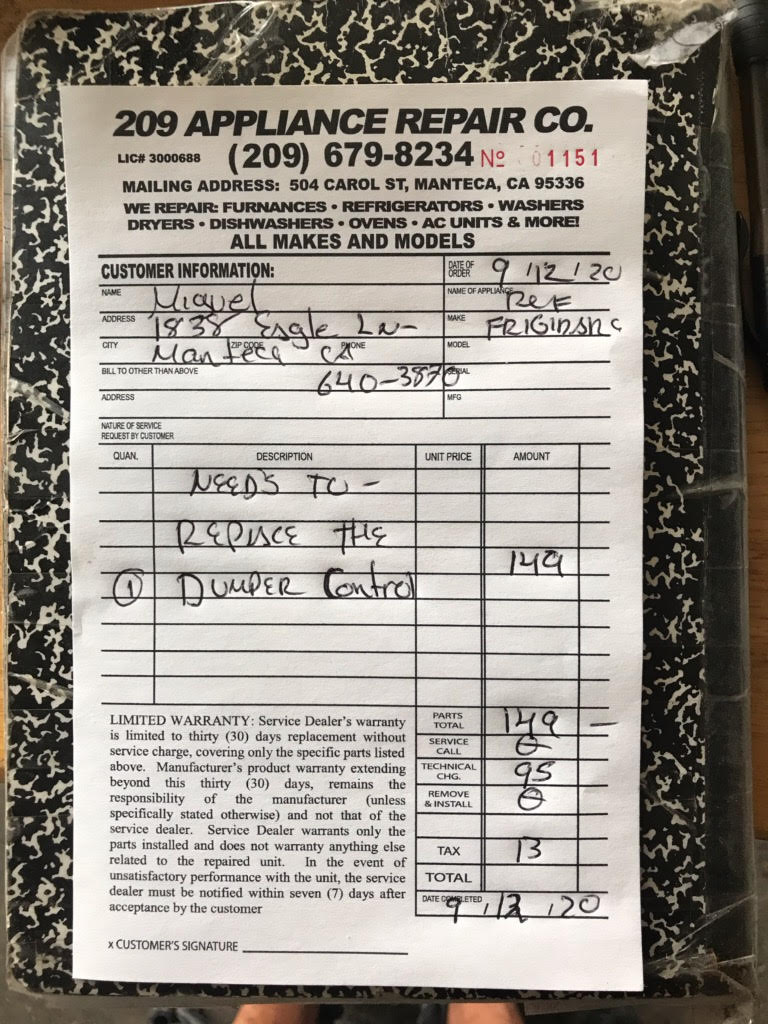 209 APPLIANCE REPAIR CO.
LIC# 3000688 (209) 679-8234 Nº 01151
MAILING ADDRESS: 504 CAROL ST, MANTECA, CA 95336
WE REPAIR: FURNANCES • REFRIGERATORS • WASHERS
DRYERS • DISHWASHERS • OVENS • AC UNITS & MORE!
ALL MAKES AND MODELS
CUSTOMER INFORMATION: DATE OF ORDER 9/12/20
NAME Miquel NAME OF APPLIANCE REF
ADDRESS 1838 Eagle Ln- MAKE
CITY Manteca ZIP CODE CA PHONE MODEL
BILL TO OTHER THAN ABOVE 640-3870 SERIAL
ADDRESS MFG
NATURE OF SERVICE
REQUEST BY CUSTOMER
QUAN. DESCRIPTION UNIT PRICE AMOUNT
NEEDS TO -
REPLACE THE
① DUMPER Control 149
LIMITED WARRANTY: Service Dealer's warranty
is limited to thirty (30) days replacement without
service charge, covering only the specific parts listed
above. Manufacturer's product warranty extending
beyond this thirty (30) days, remains the
responsibility of the manufacturer (unless
specifically stated otherwise) and not that of the
service dealer. Service Dealer warrants only the
parts installed and does not warranty anything else
related to the repaired unit. In the event of
unsatisfactory performance with the unit, the service
dealer must be notified within seven (7) days after
acceptance by the customer
PARTS TOTAL 149 —
SERVICE CALL 0
TECHNICAL CHG. 95
REMOVE & INSTALL 0
TAX 13
TOTAL
DATE COMPLETED 9/12/20
x CUSTOMER'S SIGNATURE